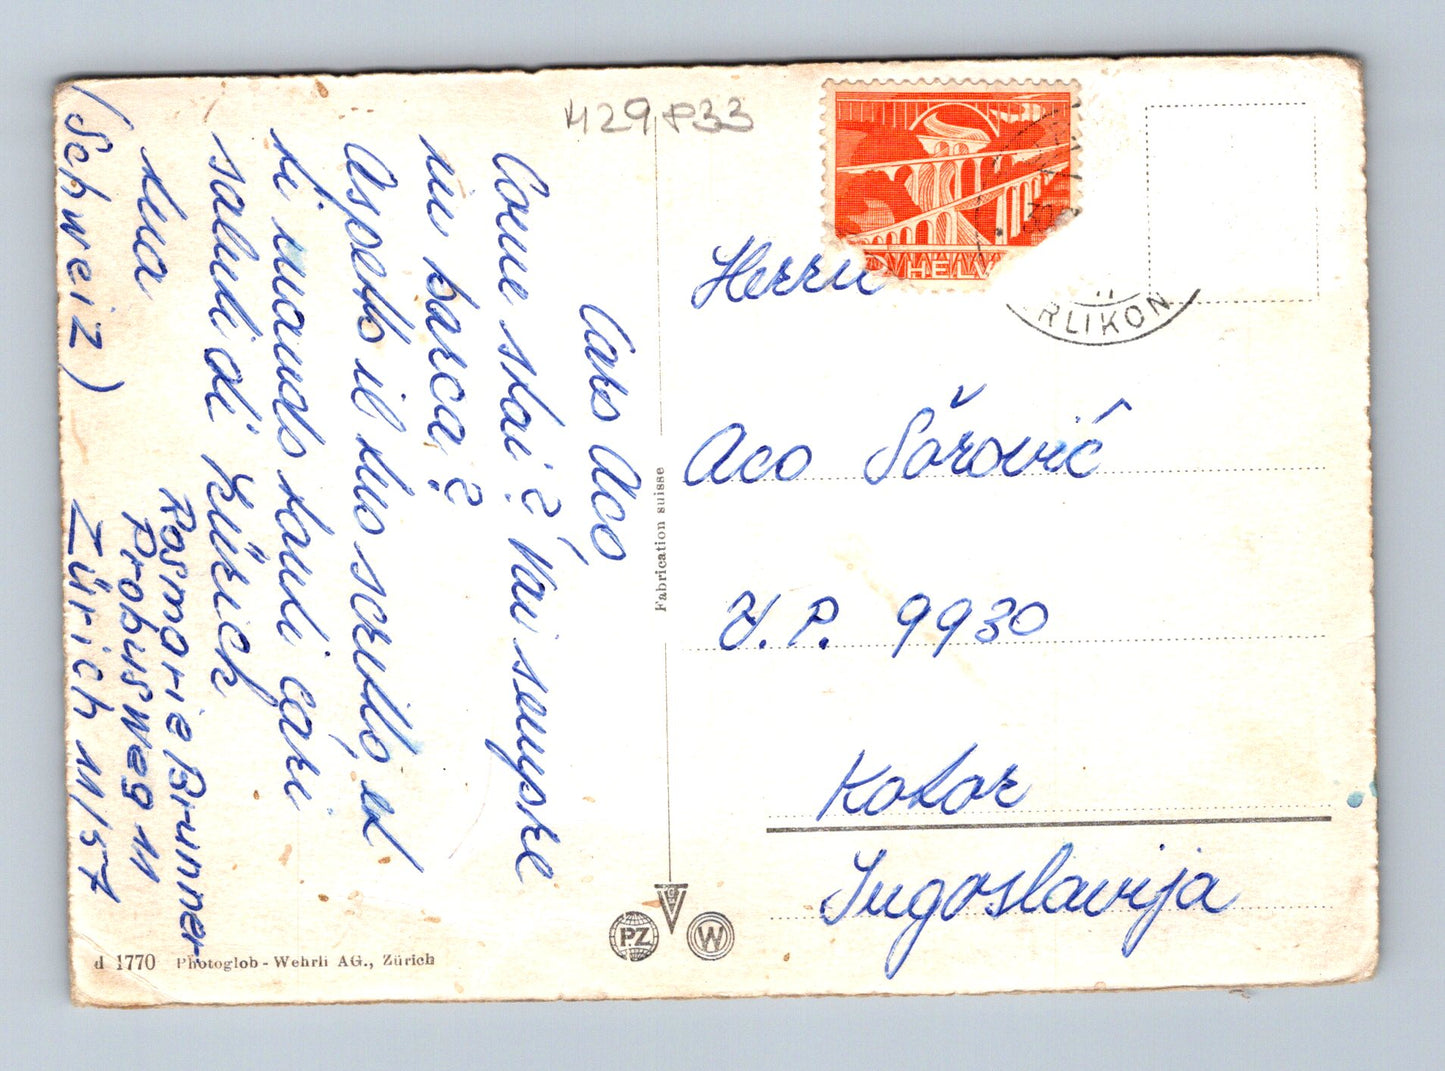 H29833
Caro Aco
Come stai? Vai sempre
in barca?
Aspetto il tuo scritto, ed
ti mando tanti cari
saluti di Zürich
tua
Rosmarie Brunner
Probusweg 11
Zürich 11/57
(Schweiz)
HELV
RLIKON
Herrn
Aco Šorović
V. P. 9930
Kotor
Jugoslavija
Fabrication suisse
PZ
W
d 1770 Photoglob - Wehrli AG., Zürich